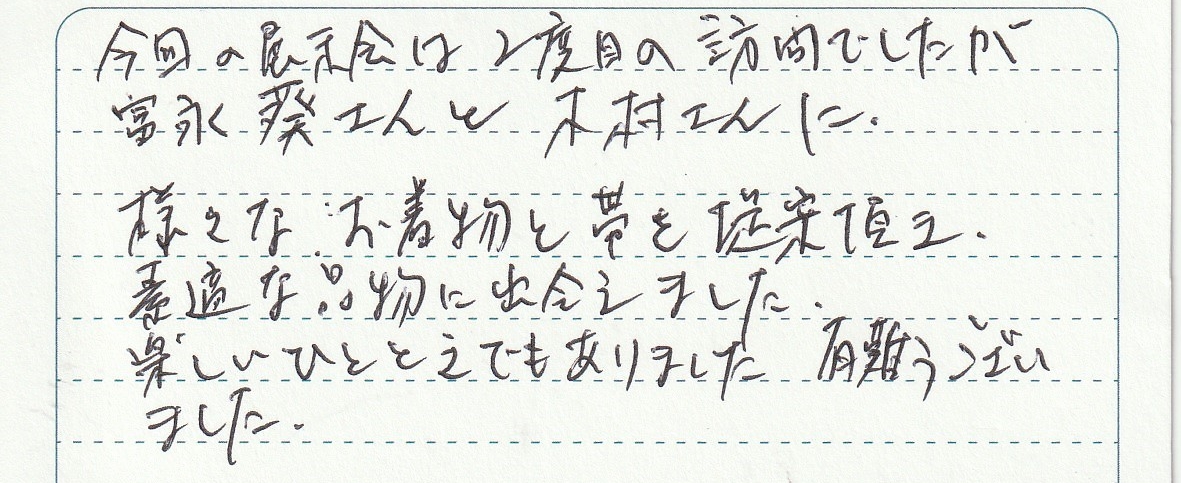 今回の展示会は2度目の訪問でしたが
富永 葵さんと 木村さんに.
様々な お着物と帯を提案頂き.
素適な品物に出会えました.
楽しいひとときでもありました 有難うござい
ました.